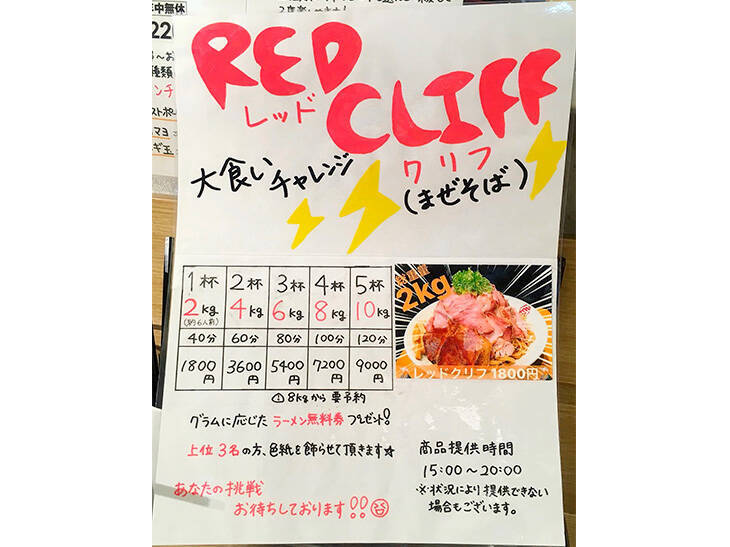 年中無休
22
種類
RED
レッド
CLIFF
クリフ
大食いチャレンジ
(まぜそば)
1杯 2杯 3杯 4杯 5杯
2kg 4kg 6kg 8kg 10kg
(約6人前)
40分 60分 80分 100分 120分
1800円 3600円 5400円 7200円 9000円
総重量
2kg
レッドクリフ 1800円
①8kgから要予約
グラムに応じたラーメン無料券プレゼント!
上位3名の方、色紙を飾らせて頂きます☆
あなたの挑戦
お待ちしております!!
商品提供時間
15:00〜20:00
※状況により提供できない
場合もございます。